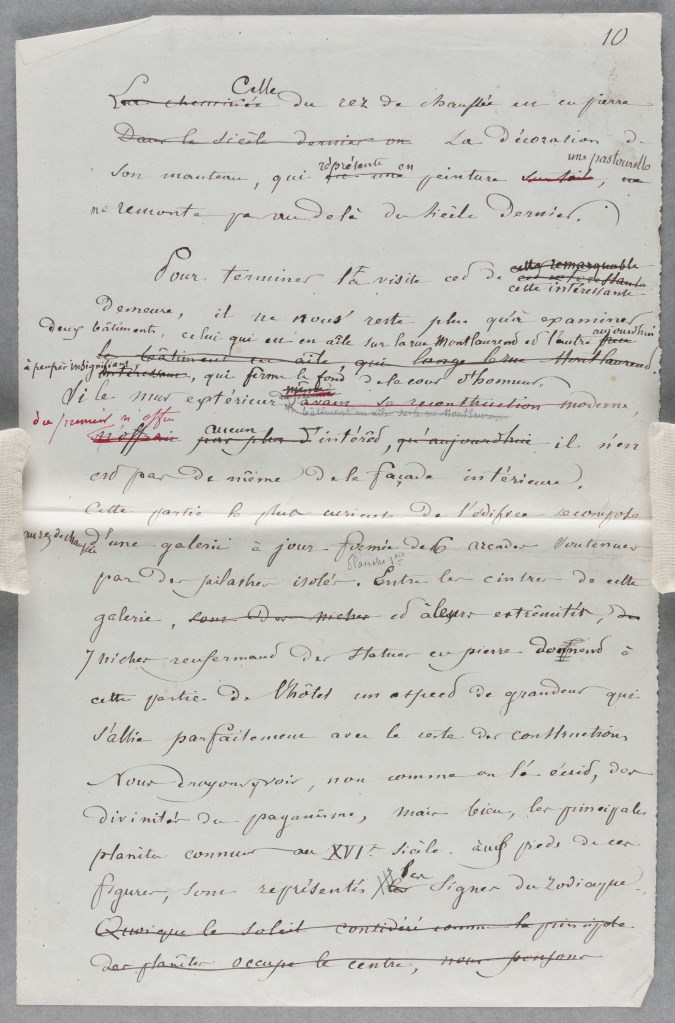 10
Celle
La cheminée du rez de chaussée est en pierre
Dans le siècle dernier on La décoration de
représente en une pastourelle
son manteau, qui peinture sur toile,
ne remonte pas au delà du siècle dernier.
cette remarquable
Pour terminer la visite de
cette intéressante
demeure, il ne nous reste plus qu'à examiner
deux bâtiments, celui qui est en aîle sur la rue Montlaurend et l'autre aujourd'hui
le bâtiment en aîle qui longe la rue Montlaurend.
à peu près insignifiant
intéressant, qui ferme le fond de la cour d'honneur.
même
Si le mur extérieur avant sa reconstruction moderne,
bâtiment en aîle sur la rue Montlaurend
du premier n'offre
aucun
n'offrait pas plus d'intérêt, qu'aujourd'hui il n'en
est pas de même de la façade intérieure.
Cette partie la plus curieuse de l'édifice se compose
au rez de chaussée
d'une galerie à jour formée de 6 arcades soutenues
Planche
par des pilastres isolés. Entre les cintres de cette
galerie, sous des niches et à leurs extrêmités, de
7 niches renfermant des statues en pierre donnent à
cette partie de l'hôtel un aspect de grandeur qui
s'allie parfaitement avec le reste des constructions
Nous croyons y voir, non comme on l'a écrit, des
divinités du paganisme, mais bien, les principales
planètes connues au XVIe siècle. aux pieds de ces
les
figures, sont représentés les signes du Zodiaque.
Quoique le soleil considéré comme la principale
des planètes occupe le centre, nous pensons